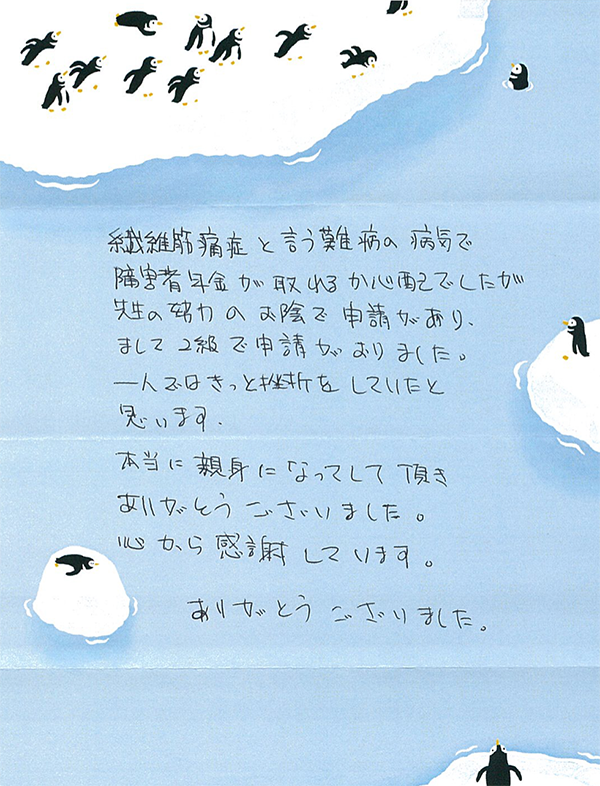 繊維筋痛症と言う難病の病気で
障害者年金が取れるか心配でしたが
先生の努力のお陰で申請があり、
まして2級で申請がおりました。
一人ではきっと挫折をしていたと
思います。
本当に親身になってして頂き
ありがとうございました。
心から感謝しています。
ありがとうございました。